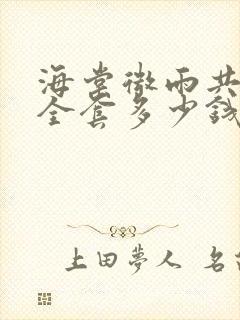 海棠微雨共
全套多少钱
上田夢人 名